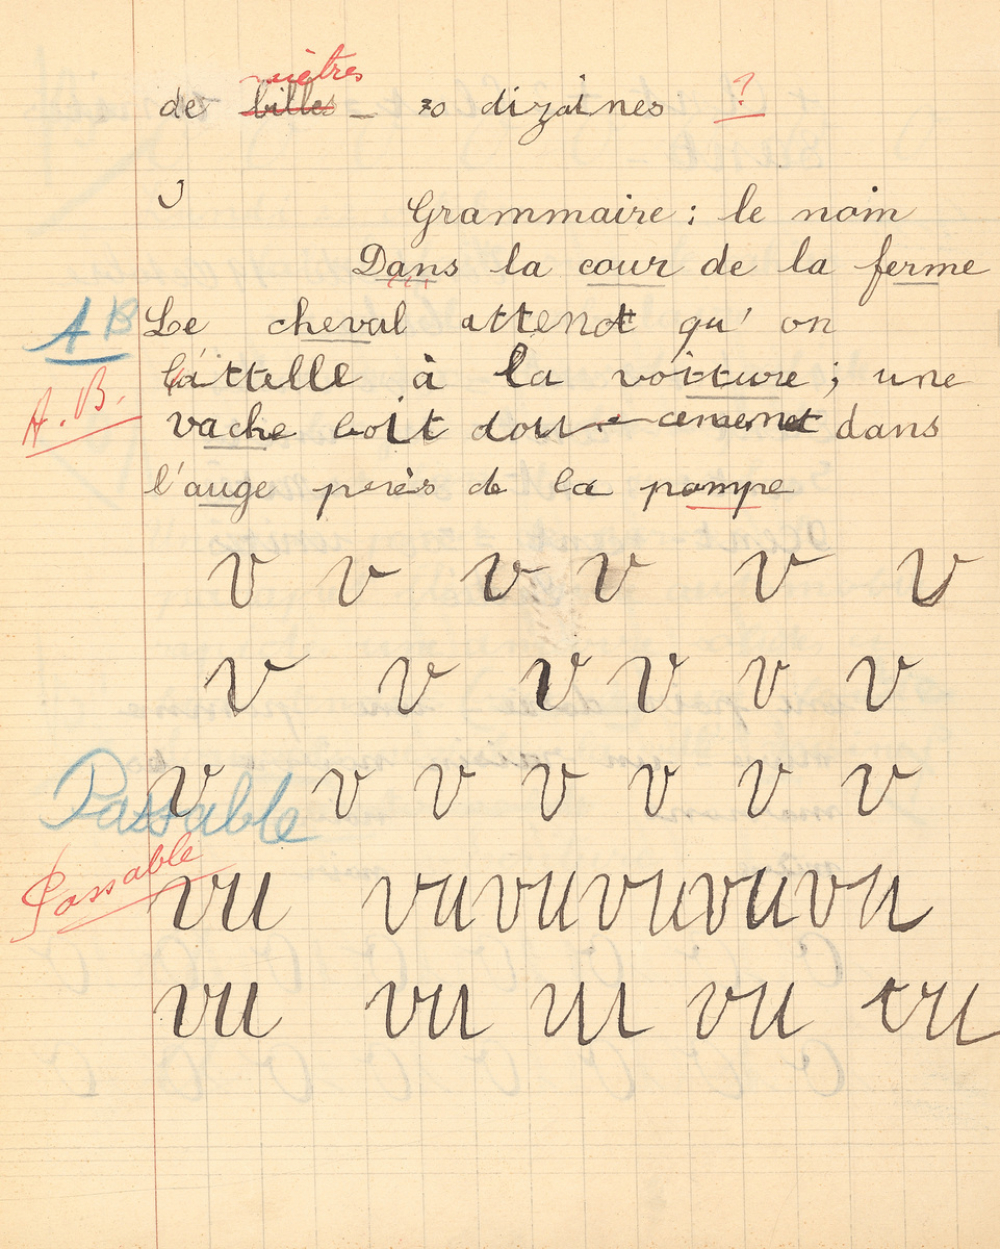 mètres
de billes - 70 dizaines ?
Grammaire : le nom
Dans la cour de la ferme
A B Le cheval attend qu' on
A. B. l'attelle à la voiture ; une
vache boit doucement dans
l'auge près de la pompe
v v v v v v
v v v v v v
Passable v v v v v v v
Passable vu vu vu vu vu vu
vu vu vu vu vu